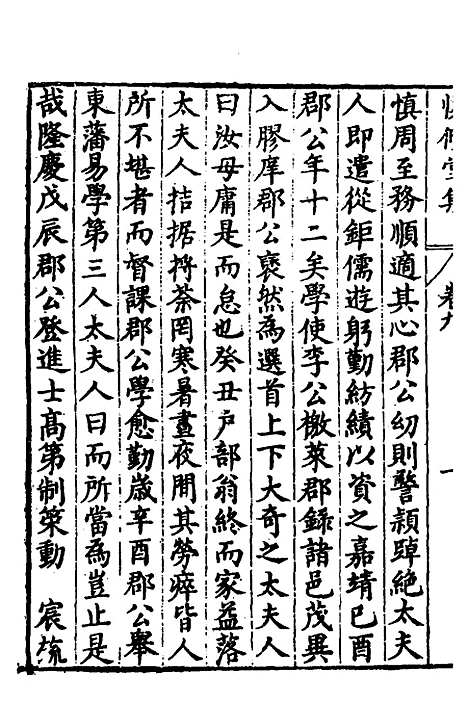 卷九
慎周至務順適其心郡公幼則警頴踔絕太夫
人即遣從鉅儒遊躬勤紡績以資之嘉靖己酉
郡公年十二矣學使李公檄萊郡錄諸邑茂異
入膠庠郡公裒然為選首上下大奇之太夫人
曰汝毋庸是而怠也癸丑戶部翁終而家益落
太夫人拮据捋荼罔寒暑晝夜閒其勞瘁皆人
所不堪者而督課郡公學愈勤歲辛酉郡公舉
東藩易學第三人太夫人曰而所當為豈止是
哉隆慶戊辰郡公登進士高第制策動 宸旒